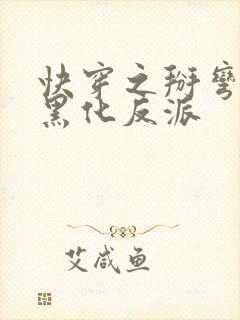 快穿之掰弯
黑化反派
艾咸鱼